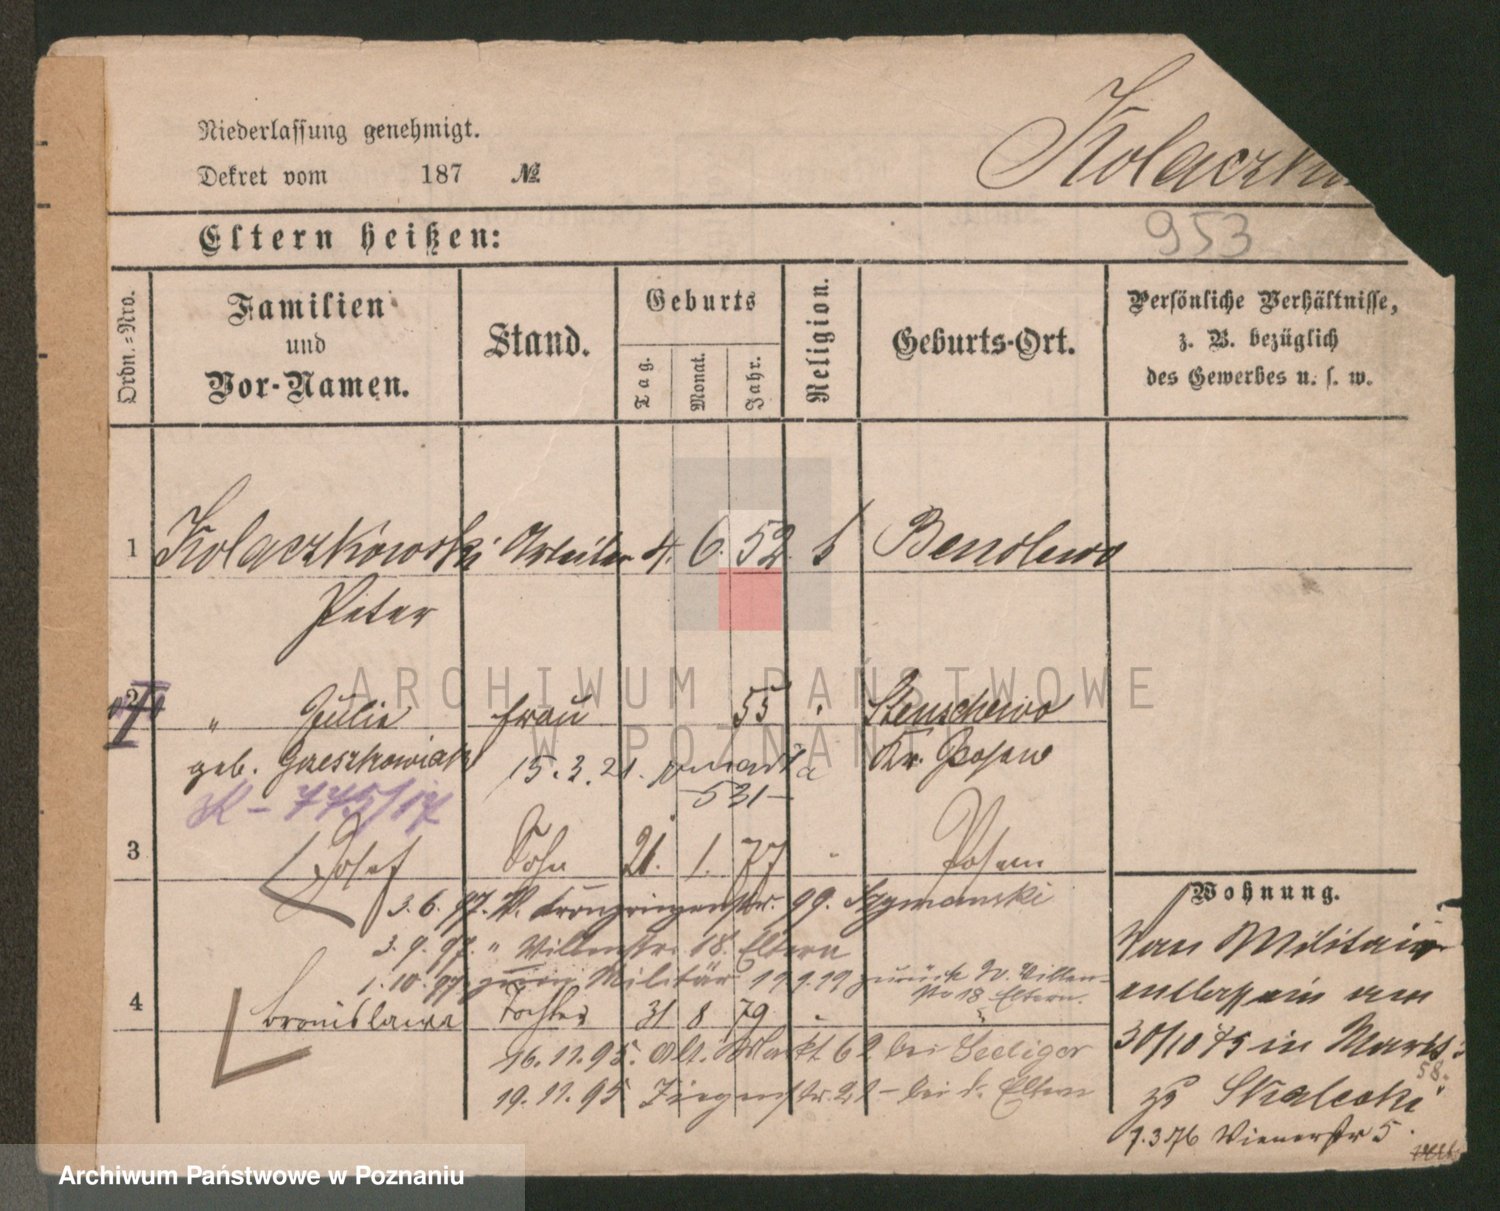 Kolaczko
Niederlassung genehmigt.
Dekret vom 187 №
953
Eltern heißen:
Ordn.-Nro.
Familien und Vor-Namen.
Stand.
Geburts
Tag.
Monat.
Jahr.
Religion.
Geburts-Ort.
Persönliche Verhältnisse,
z. B. bezüglich
des Gewerbes u. s. w.
1 Kolaczkowski Arbeiter 4. 6. 52. Bendlewo
Peter
2 " Julie Frau 55 " Stenschewo
geb. 15. 3. 21. Kr. Posen
531
K-775/17
3 Josef Sohn 21. 1. 77 " Posen
3. 6. 97. W. Kronprinzenstr. 99. Szymanski
3. 9. 97. " 18. Eltern
1. 10. 97 zum Militär 19.9.99 zurück W.
18 Eltern.
4 Bronislawa Tochter 31 8 79 "
16. 11. 95. Alt. Markt 62 bei Seeliger
19. 11. 95 Ziegenstr. 21 - bei d. Eltern
Wohnung.
Vom Militair
entlassen am
30/10 75 in
58.
zu
1.3.76 Wienerstr 5.
ARCHIWUM PAŃSTWOWE
W POZNANIU
Archiwum Państwowe w Poznaniu